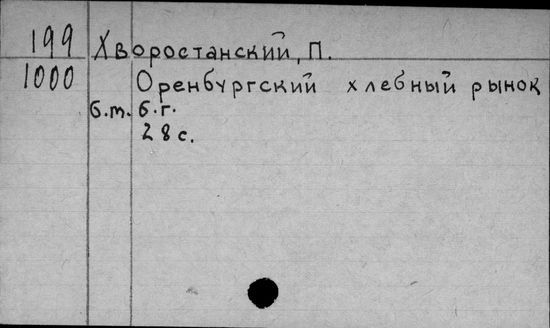 199 Хворостанский, П.
1000 Оренбургский хлебный рынок
б.т. б.г.
28 с.